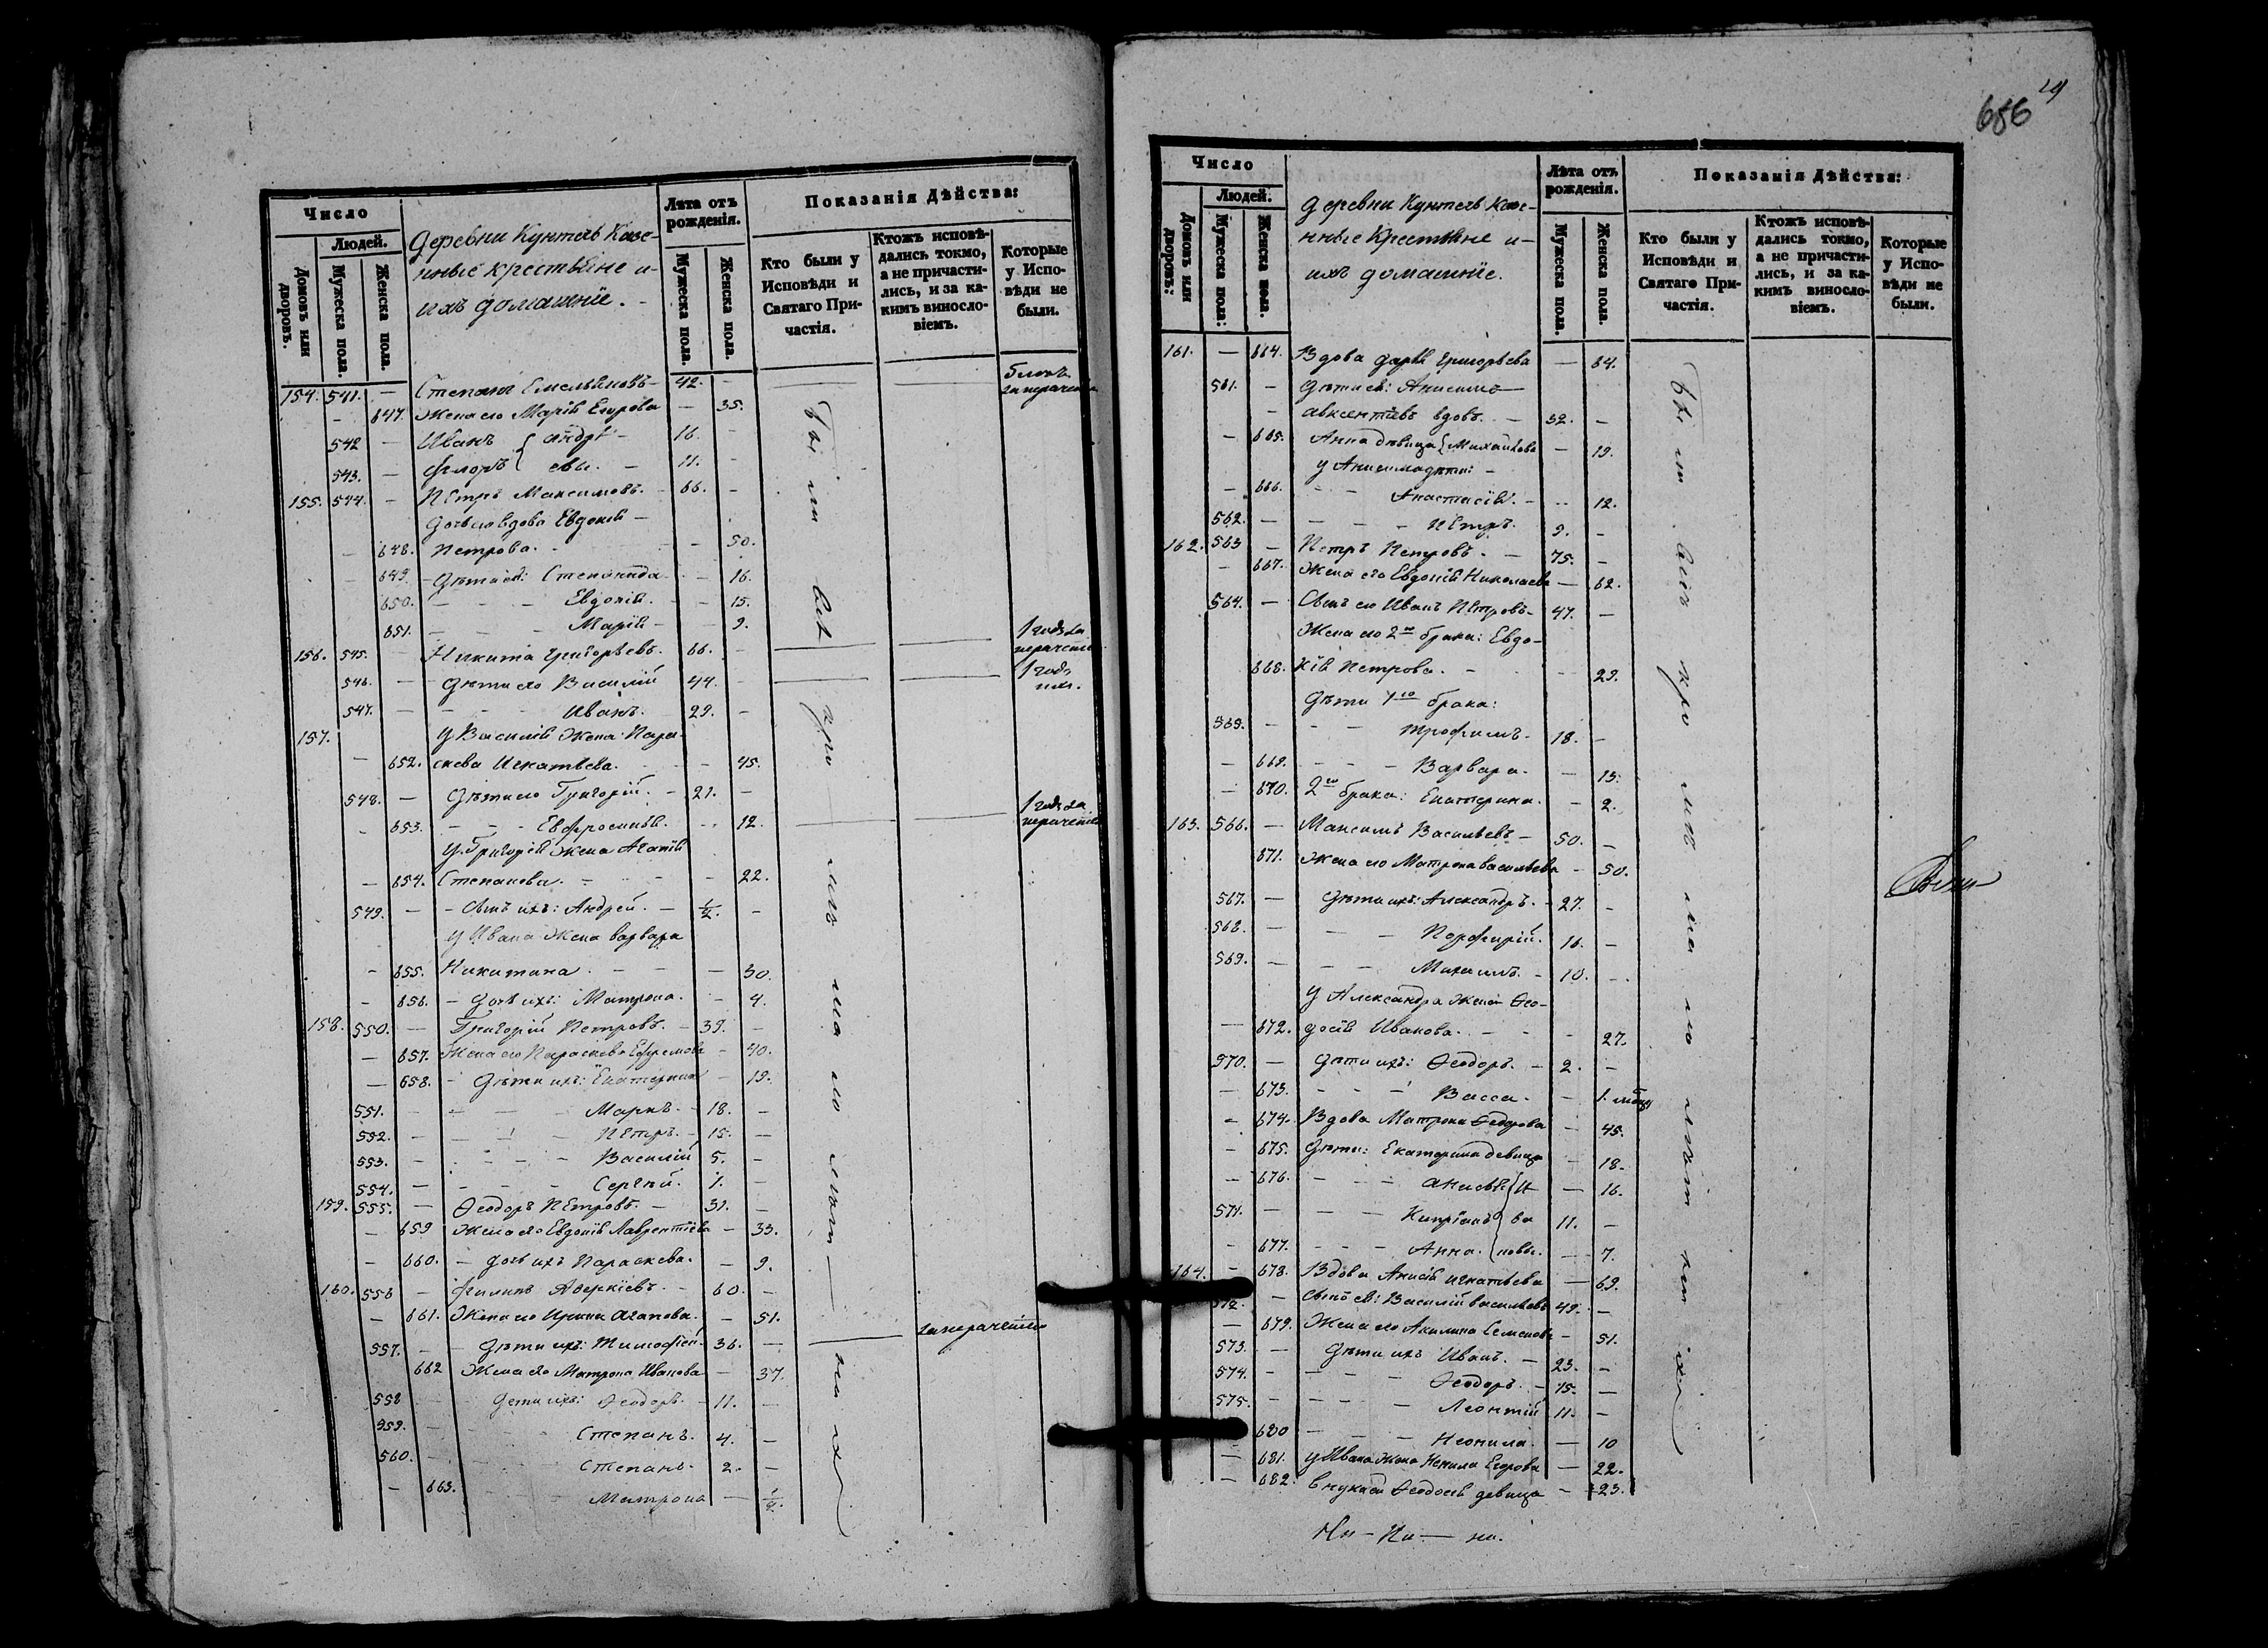 Число
Людей.
Домовъ или дворовъ.
Мужеска пола.
Женска пола.
деревни Кунтявъ Казе-
нные крестьяне и
ихъ домашніе.
Лѣта отъ рожденія.
Мужеска пола.
Женска пола.
Показанія Дѣйства:
Кто были у Исповѣди и Святаго Причастія.
Ктожъ исповѣдались токмо, а не причастились, и за какимъ винословіемъ.
Которые у Исповѣди не были.
154. 541. — Степанъ Емельяновъ 42. —
за нерачен
— 647. Жена его Марія Егорова — 35.
542 — Иванъ { андре 16. —
543. — Флоръ { евы. 11. —
155. 544. — Петръ Максимовъ. 66. —
дочь его вдова Евдокія —
— 648. Петрова. — 50.
— 649. — дѣти ея: Степанида — 16.
650. — Евдокія. — 15.
651. — Марія — 9.
156. 545. — Никита Григорьевъ. 66. — 1 годъ за нерачені
546. — дѣти его Василій 44. — 1 годъ
547. — Иванъ. 29. —
157. у Василія Жена Пара-
— 652. скева Игнатьева. — 45.
548. — дѣти его Григорій. — 21. —
— 653. — Евфросинія. — 12. 1 годъ за нерачені
у Григорія Жена Агапія
— 654. Степанова. — 22.
549. — сынъ ихъ: Андрей. — ½. —
у Ивана Жена варвара
— 655. Никитина. — 30.
— 656. — дочь ихъ: Матрона. — 4.
158. 550. — Григорій Петровъ. — 39. —
— 657. Жена его Параскева Ефремова — 40.
— 658. — дѣти ихъ: Екатерина — 19.
551. — Маркъ. — 18. —
552. — Петръ. — 15. —
553. — Василій 5. —
554. — Сергѣй. 1. —
159. 555. — Ѳеодоръ Петровъ. — 31. —
— 659 Жена его Евдокія Лаврентіева — 33.
— 660. — дочь ихъ Параскева. — 9.
160. 556 — Филипъ Аверкіевъ. — 60. —
— 661. Жена его Ирина Агапова. — 51.
557. — дѣти ихъ: Тимофей. 36. — за нерачені
662 Жена его Матрона Иванова — 37.
558 — дети ихъ: Ѳеодоръ. — 11. —
559. — Степанъ. 4. —
560. — Степанъ. 2. —
— 663. Матрона — ½.
656
Число
Людей.
Домовъ или дворовъ:
Мужеска пола:
Женска пола.
деревни Кунтявъ Казе-
нные Крестьяне и
ихъ домашніе.
Лѣта отъ рожденія.
Мужеска пола.
Женска пола.
Показанія Дѣйства:
Кто были у Исповѣди и Святаго Причастія.
Ктожъ исповѣдались токмо, а не причастились, и за какимъ винословіемъ.
Которые у Исповѣди не были.
161. — 664. Вдова дарья Григорьева — 64.
561. — дѣти ея: Анисимъ
— авксентіевъ вдовъ. — 32. —
— 665. Анна дѣвица { Михайлова — 19.
у Анисима дѣти: —
— 666. — Анастасія. — 12.
562. — Петръ. 9. —
162. 563 — Петръ Петровъ. — 75. —
— 667. Жена его Евдокія Николаева — 62.
564. — Сынъ его Иванъ Петровъ. 47. —
Жена его 2го брака: Евдо-
668. кія Петрова. — 29.
дѣти 1го брака:
565. — Трофимъ. 18. —
— 669. — Варвара. — 13.
— 670. 2го брака: Екатерина. — 2.
163. 566. — Максимъ Васильевъ — 50. —
671. Жена его Матрона васильева — 50.
567. — дѣти ихъ: Александръ. — 27. —
568. — Порфирій. 16. —
569. — Михаилъ. — 10. —
у Александра жена Ѳео-
— 672. досія Иванова. — 27.
570. — дѣти ихъ: Ѳеодоръ. — 2. —
— 673. — Васса. — 1.
— 674. Вдова Матрона Ѳеодорова — 45.
— 675. дѣти: Екатерина девица — 18.
— 676. — Анисья { И — 16.
571. — Кипріанъ { ва 11. —
— 677. — Анна. { новы. — 7.
164. — 678. Вдова Анисія игнатьева — 69.
572. — сынъ ея: Василій васильевъ 49. —
— 679. Жена его Акилина Семенова — 51.
573. — дѣти ихъ Иванъ. — 23. —
574. — Ѳеодоръ. — 15. —
575. — Леонтій 11. —
680 — Неонила. — 10
— 681. у Ивана жена Ненила Егорова — 22.
— 682. внука ея Ѳеодосія девица — 23.